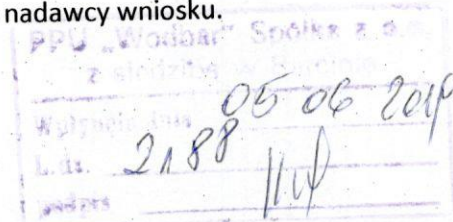 nadawcy wniosku.
PPU „Wodbar” Spółka z o.o.
z siedzibą w Barcinie
Wpłynęło dnia 05 06
L.dz. 2188
podpis